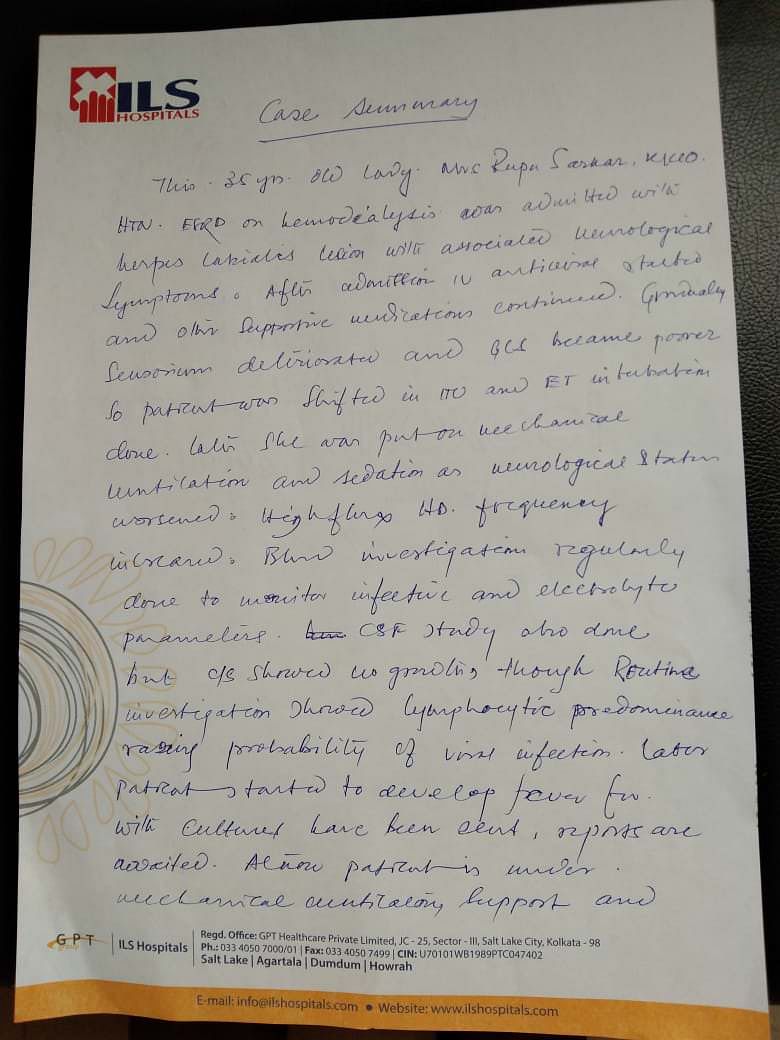 ILS
HOSPITALS
Case Summary
This 35 yrs. old lady Mrs Rupa Sarkar, K/C/O.
HTN. ESRD on hemodialysis was admitted with
herpes labialis lesion with associated neurological
symptoms. After admission IV antiviral started
and other supportive medications continued. Gradually
sensorium deteriorated and GCS became poorer
so patient was shifted in ITU and ET intubation
done. Later she was put on mechanical
ventilation and sedation as neurological status
worsened. High flux HD. frequency
increased. Blood investigation regularly
done to monitor infective and electrolyte
parameters. CSF study also done
but c/s showed no growth, though Routine
investigation showed lymphocytic predominance
rasing probability of viral infection. Later
patient started to develop fever for
with cultures have been sent, reports are
awaited. At now patient is under
mechanical ventilatory support and
GPT
ILS Hospitals
Regd. Office: GPT Healthcare Private Limited, JC - 25, Sector - III, Salt Lake City, Kolkata - 98
Ph.: 033 4050 7000/01 | Fax: 033 4050 7499 | CIN: U70101WB1989PTC047402
Salt Lake | Agartala | Dumdum | Howrah
E-mail: info@ilshospitals.com ● Website: www.ilshospitals.com